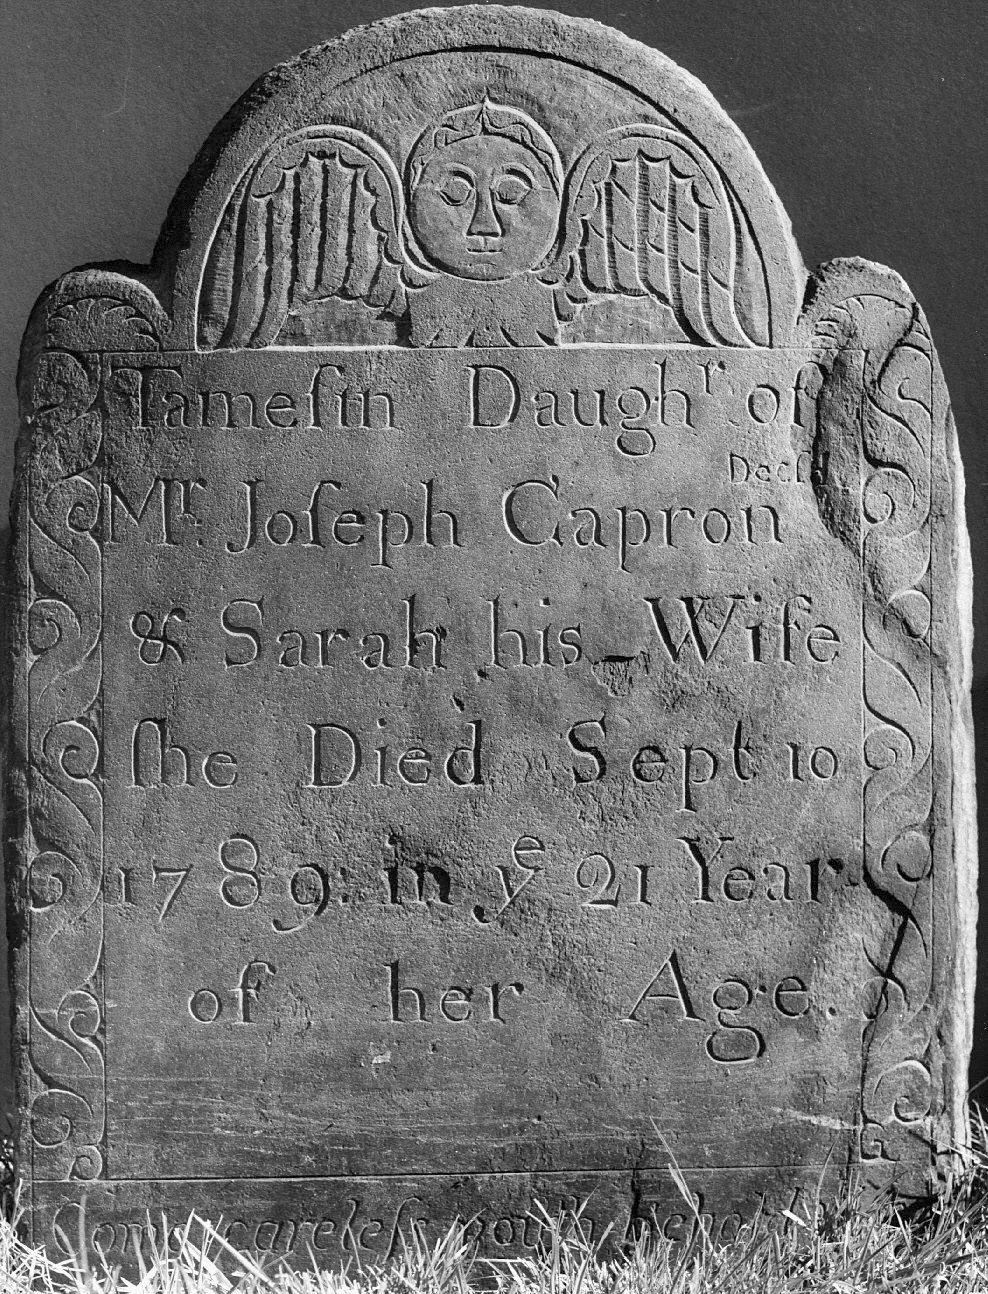 Tameſin Daughr of
Decſd
Mr. Joſeph Capron
& Sarah his Wife
ſhe Died Sept 10
1789: in ye 21 Year
of her Age.
Come careleſs youth behold